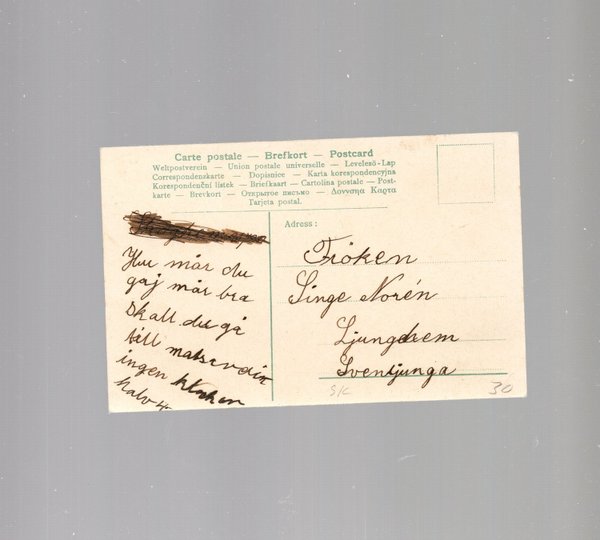 Carte postale — Brefkort — Postcard
Weltpostverein — Union postale universelle — Levelező-Lap
Correspondenzkarte — Dopisnice — Karta korespondencyjna
Korespondenční lístek — Briefkaart — Cartolina postale — Post-
karte — Brevkort — Открытое письмо — Δουνσηα Καρτα
Tarjeta postal.
Hur mår du
gaj mår bra
Skall du gå
till
ingen klocken
halv 4
Adress:
Fröken
Singe Norén
Ljunghem
Svenljunga
S/C
30